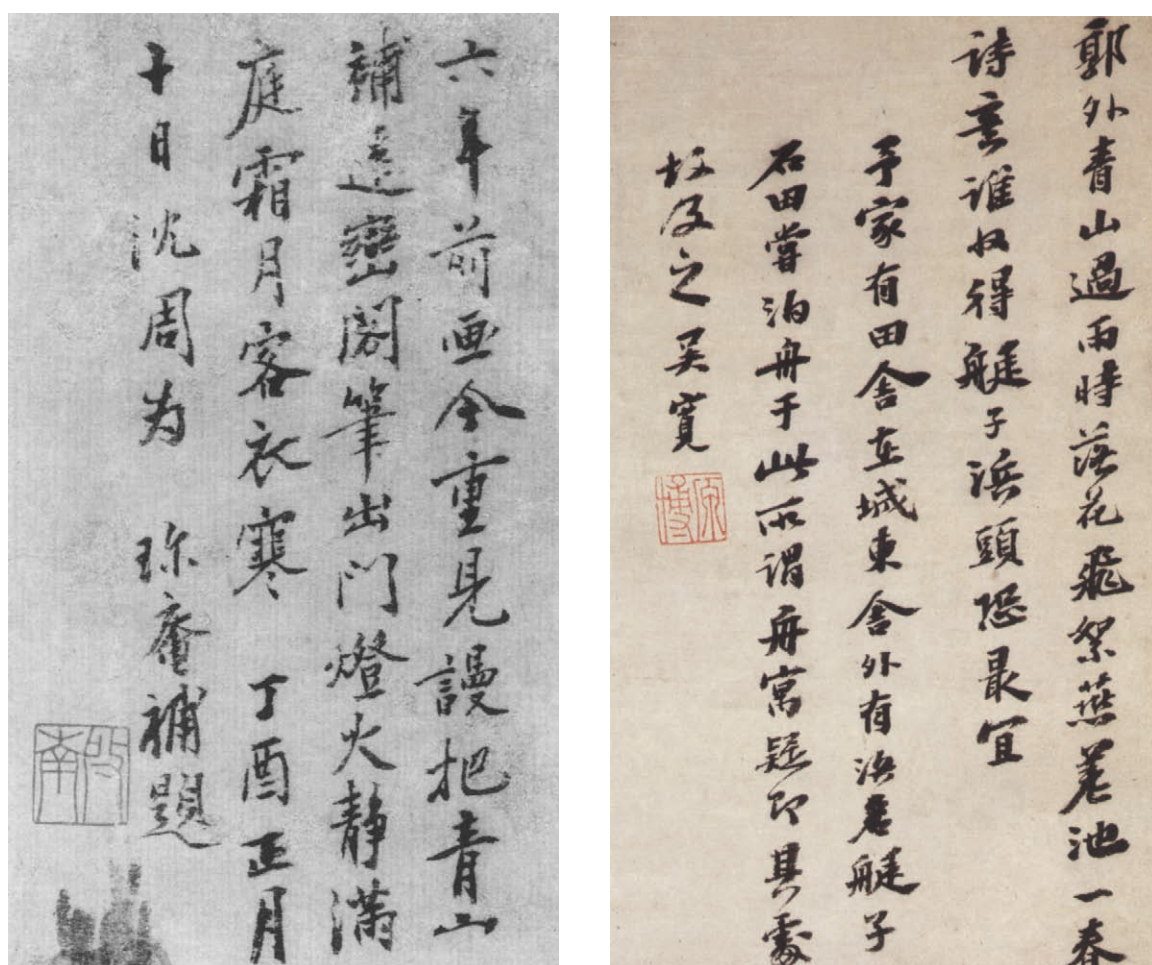 六年前画今重見謾把青山
補遠巒閣筆出門燈火静滿
庭霜月客衣寒 丁酉正月
十日沈周为 珎庵補題
啓南
郭外青山過雨時落花飛絮燕差池一春
詩意誰收得艇子浜頭恐最宜
予家有田舍在城東舍外有浜名艇子
石田嘗泊舟于此所謂舟寓疑即其處
故及之吳寬
原博